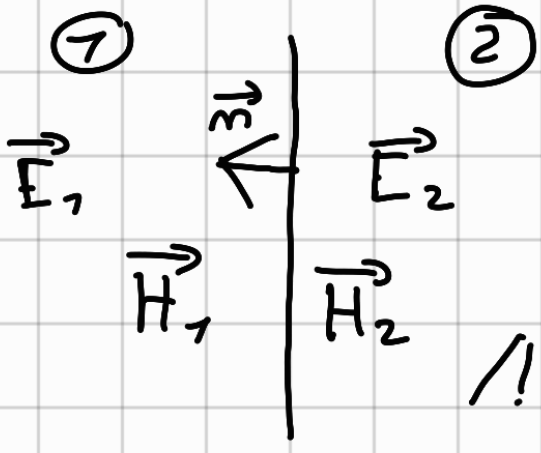 1 2
n⃗
E⃗₁ E⃗₂
H⃗₁ H⃗₂
/!